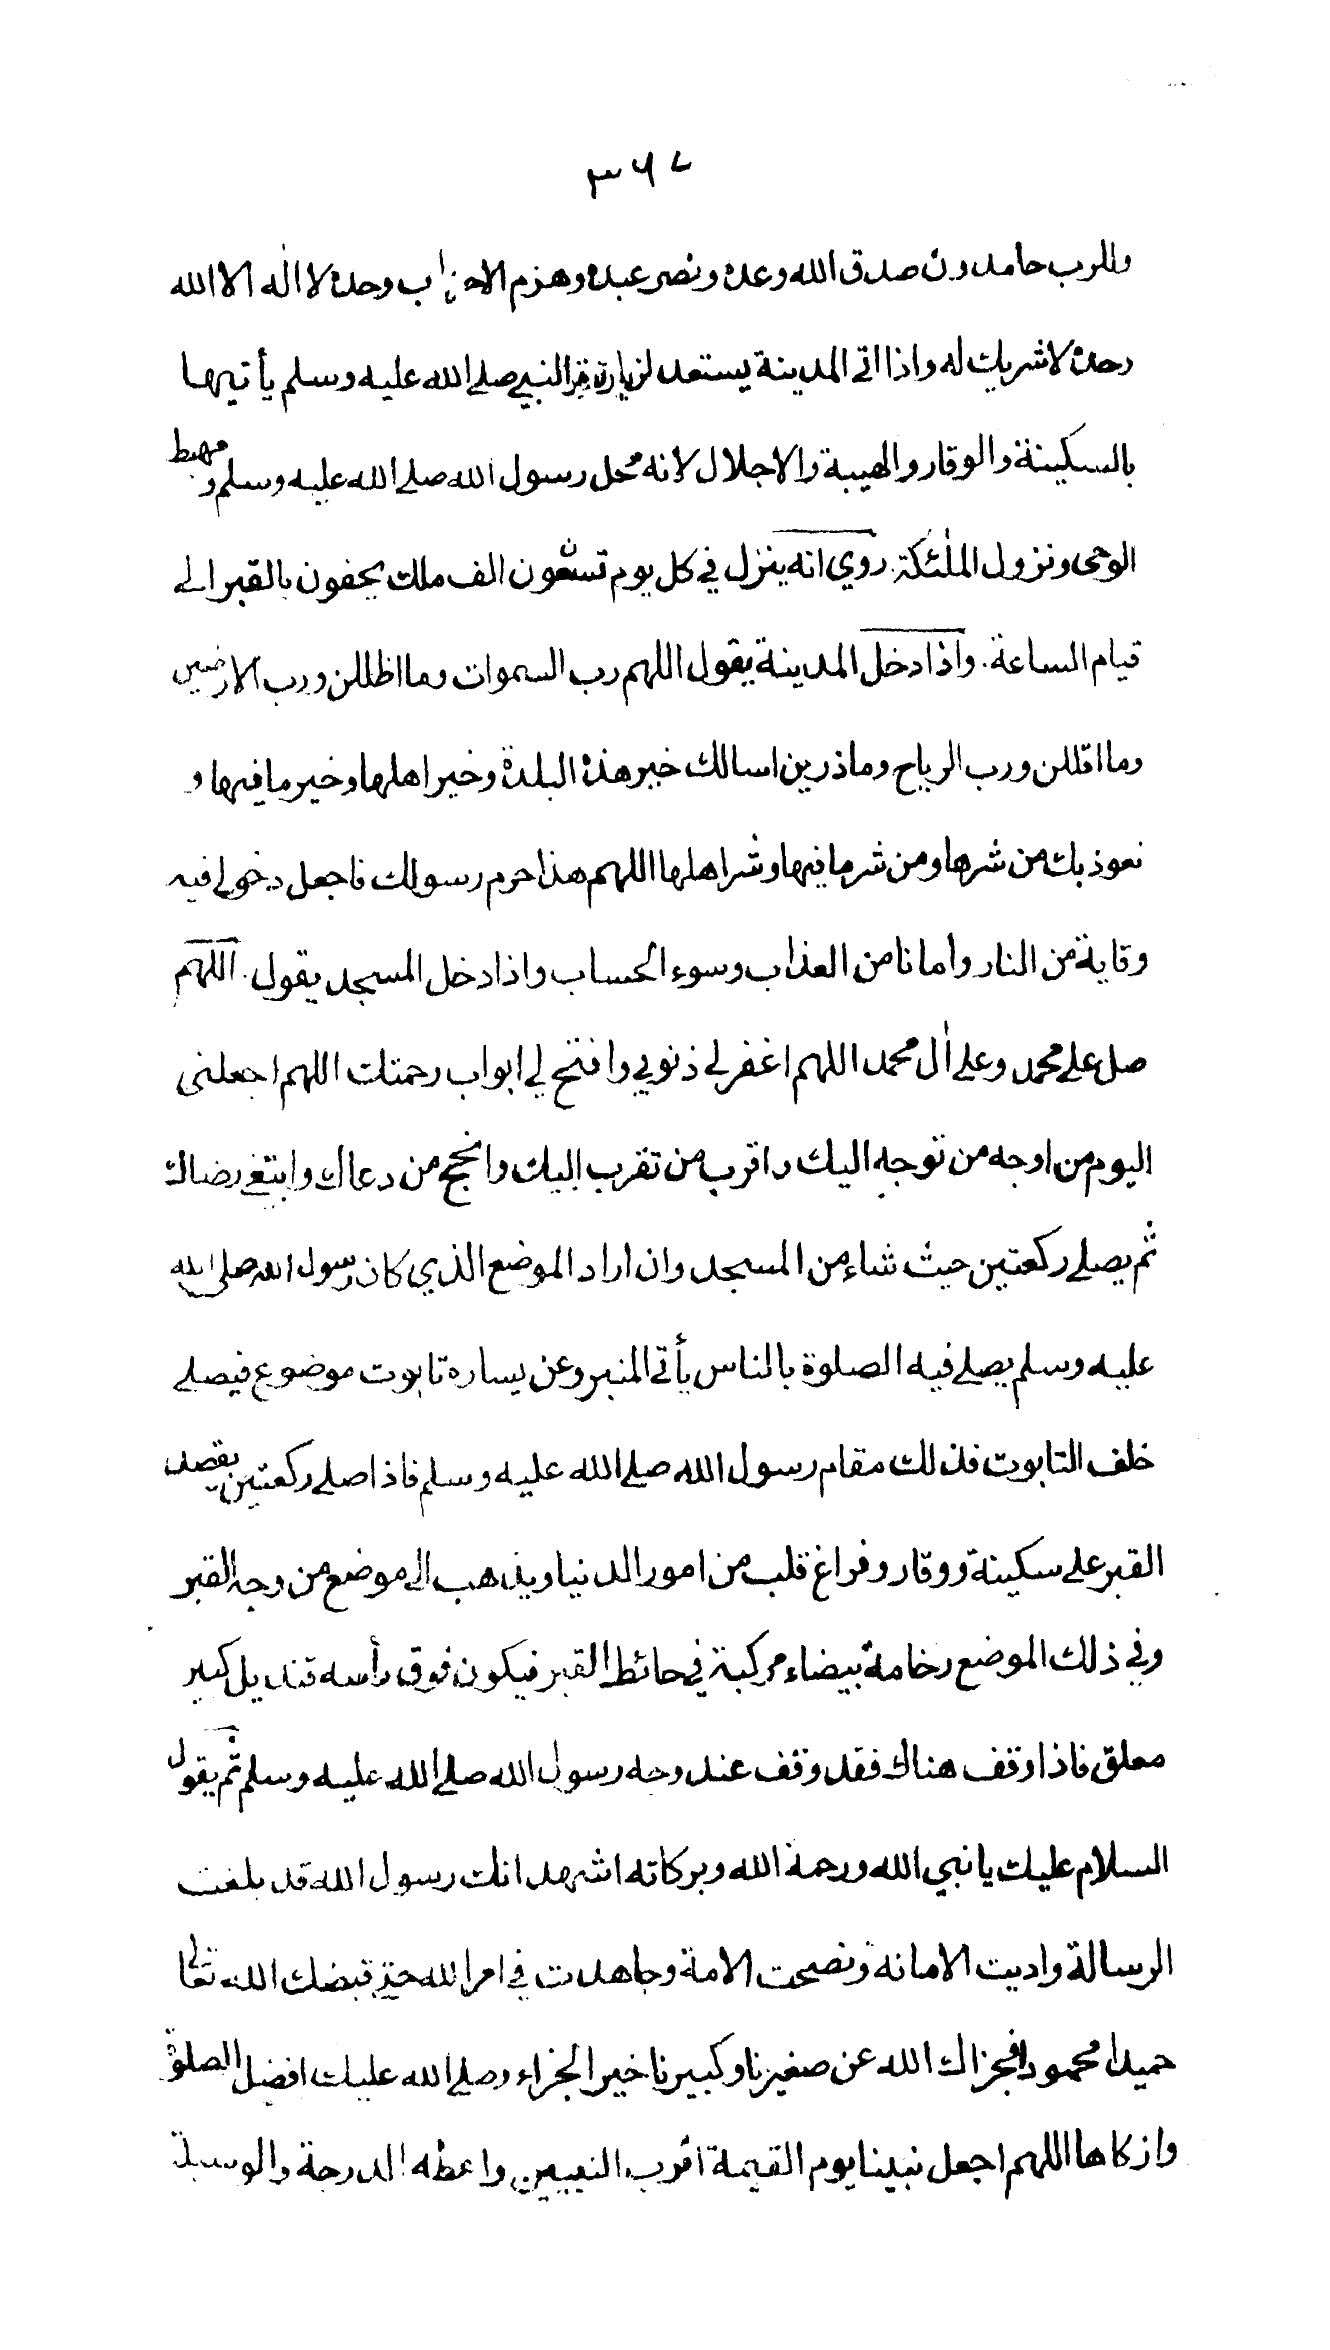 ٣٦٧
ولرب حامدون صدق الله وعده ونصر عبده وهزم الاحزاب وحده لا اله الا الله
وحده لاشريك له واذا اتى المدينة يستعد لزيارة قبر النبي صلى الله عليه وسلم يأتيها
بالسكينة والوقار والهيبة والاجلال لانه محل رسول الله صلى الله عليه وسلم ومهبط
الوحى ونزول الملٰئكة. روي انه ينزل في كل يوم تسعون الف ملك يحفون بالقبر الى
قيام الساعة. واذا دخل المدينة يقول اللهم رب السموات وما اظللن ورب الارضين
وما اقللن ورب الرياح وماذرين اسالك خير هذه البلدة وخير اهلها وخير ما فيها و
نعوذ بك من شرها ومن شر ما فيها وشر اهلها اللهم هذا حرم رسولك فاجعل دخولي فيه
وقاية من النار وأمانا من العذاب وسوء الحساب واذا دخل المسجد يقول. اللهم
صل على محمد وعلى اٰل محمد اللهم اغفر لي ذنوبي وافتح لي ابواب رحمتك اللهم اجعلنى
اليوم من اوجه من توجه اليك واقرب من تقرب اليك وانجح من دعاك وابتغى رضاك
ثم يصلي ركعتين حيث شاء من المسجد وان اراد الموضع الذي كان رسول الله صلى الله
عليه وسلم يصلي فيه الصلوة بالناس يأتى المنبر وعن يساره تابوت موضوع فيصلي
خلف التابوت فذلك مقام رسول الله صلى الله عليه وسلم فاذا صلى ركعتين يقصد
القبر على سكينة ووقار وفراغ قلب من امور الدنيا ويذهب الى موضع من وجه القبر
وفي ذلك الموضع رخامة بيضاء مركبة في حائط القبر فيكون فوق رأسه قنديل كبير
معلق فاذا وقف هناك فقد وقف عند وجه رسول الله صلى الله عليه وسلم ثم يقول
السلام عليك يا نبي الله ورحمة الله وبركاته اشهد انك رسول الله قد بلغت
الرسالة واديت الامانة ونصحت الامة وجاهدت في امر الله حتى قبضك الله تعالى
حميدا محمودا فجزاك الله عن صغيرنا وكبيرنا خير الجزاء وصلى الله عليك افضل الصلوة
وازكاها اللهم اجعل نبينا يوم القيمة اقرب النبيين واعطه الدرجة والوسيلة